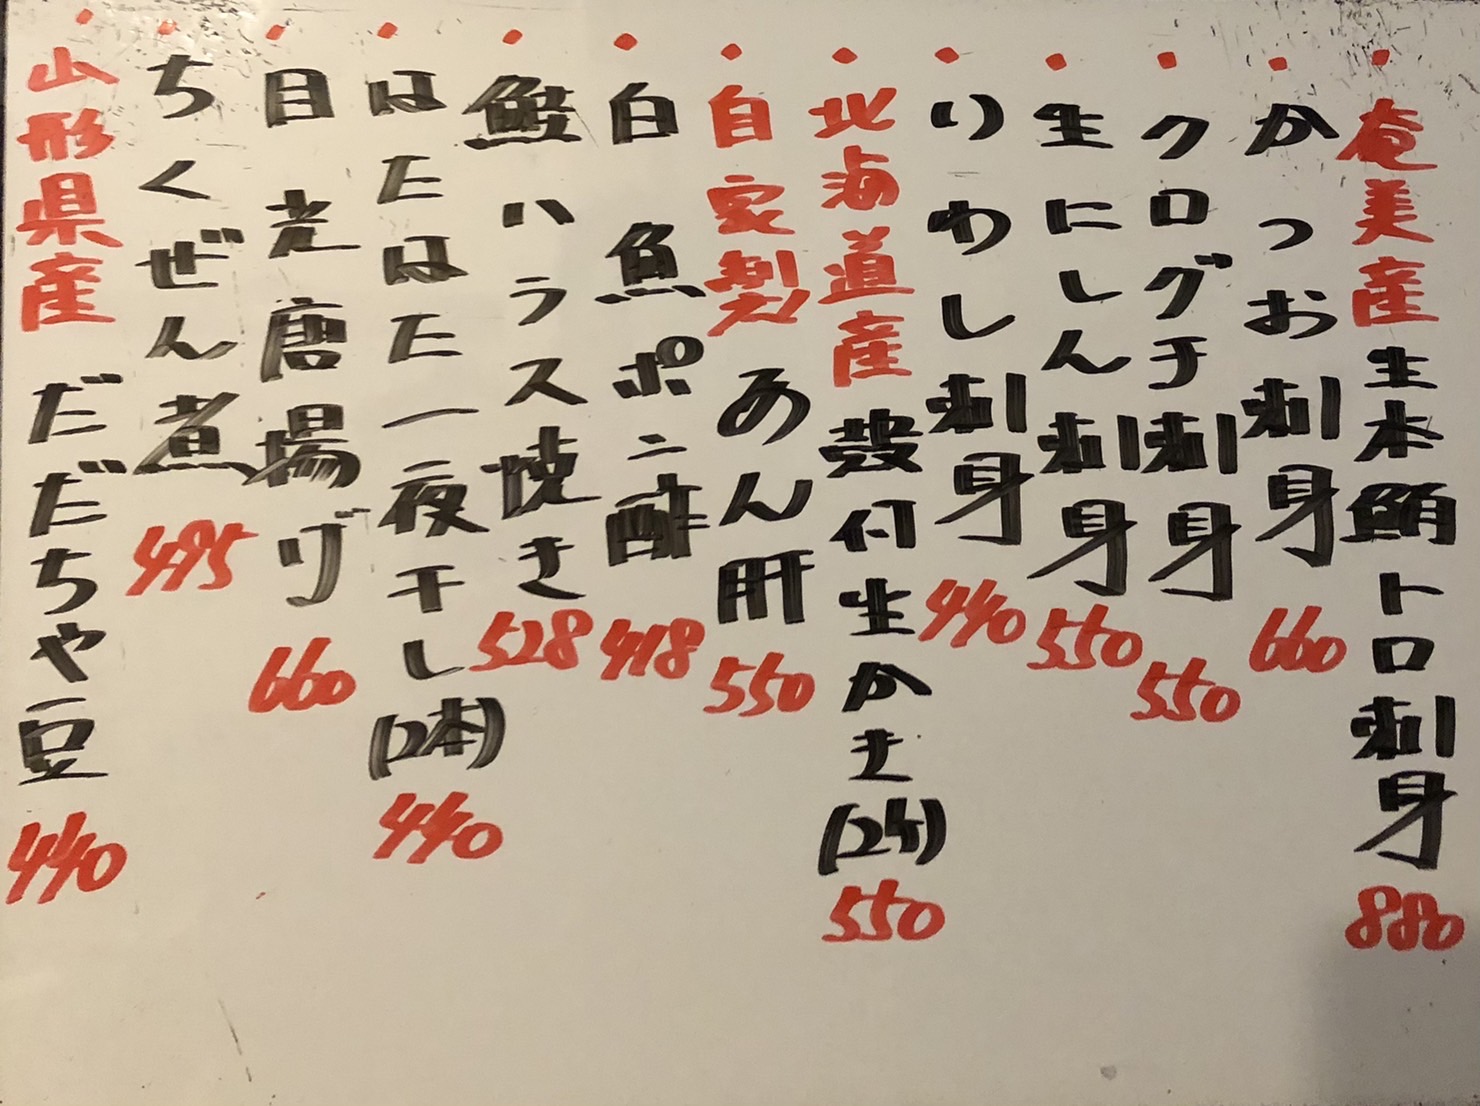 ・奄美産生本鮪トロ刺身 880
・かつお刺身 660
・クログチ刺身 550
・生にしん刺身 550
・いわし刺身 440
・北海道産殻付生かき(2ケ) 550
・自家製あん肝 550
・白魚ポン酢 418
・鮭ハラス焼き 528
・はたはた一夜干し(2本) 440
・目光唐揚げ 660
・ちくぜん煮 495
・山形県産だだちゃ豆 440